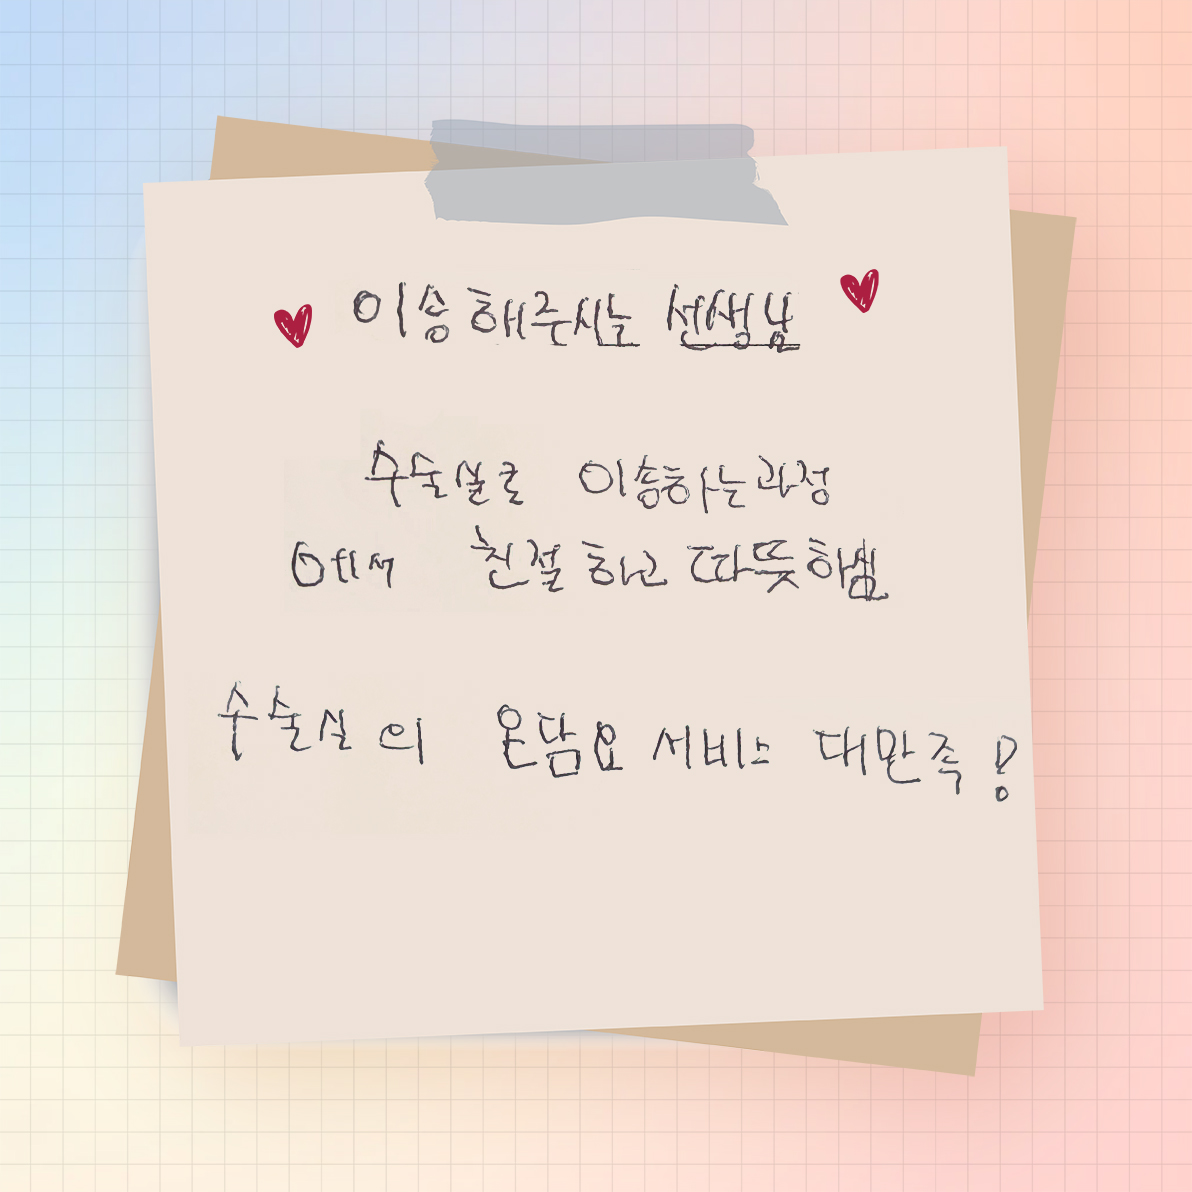 이송해주시는 선생님
수술실로 이송하는과정
에서 친절하고 따뜻하셈
수술실의 온담요 서비스 대만족!